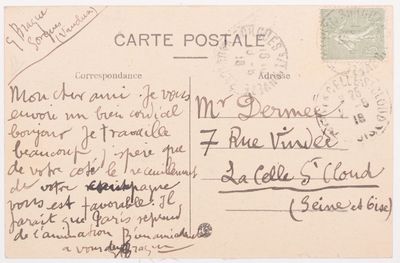 G Braque
Sorgues
(Vaucluse)
CARTE POSTALE
Correspondance
Adresse
Mon cher ami. Je vous
envoie un bien cordial
bonjour Je travaille
beaucoup J'espère que
de votre coté le recueillement
de votre campagne
vous est favorable. Il
parait que Paris reprend
de l'animation Bien amicalement
a vous deux
G Braque
Mr Dermée
7 Rue Vindé
La Celle St Cloud
(Seine et Oise)